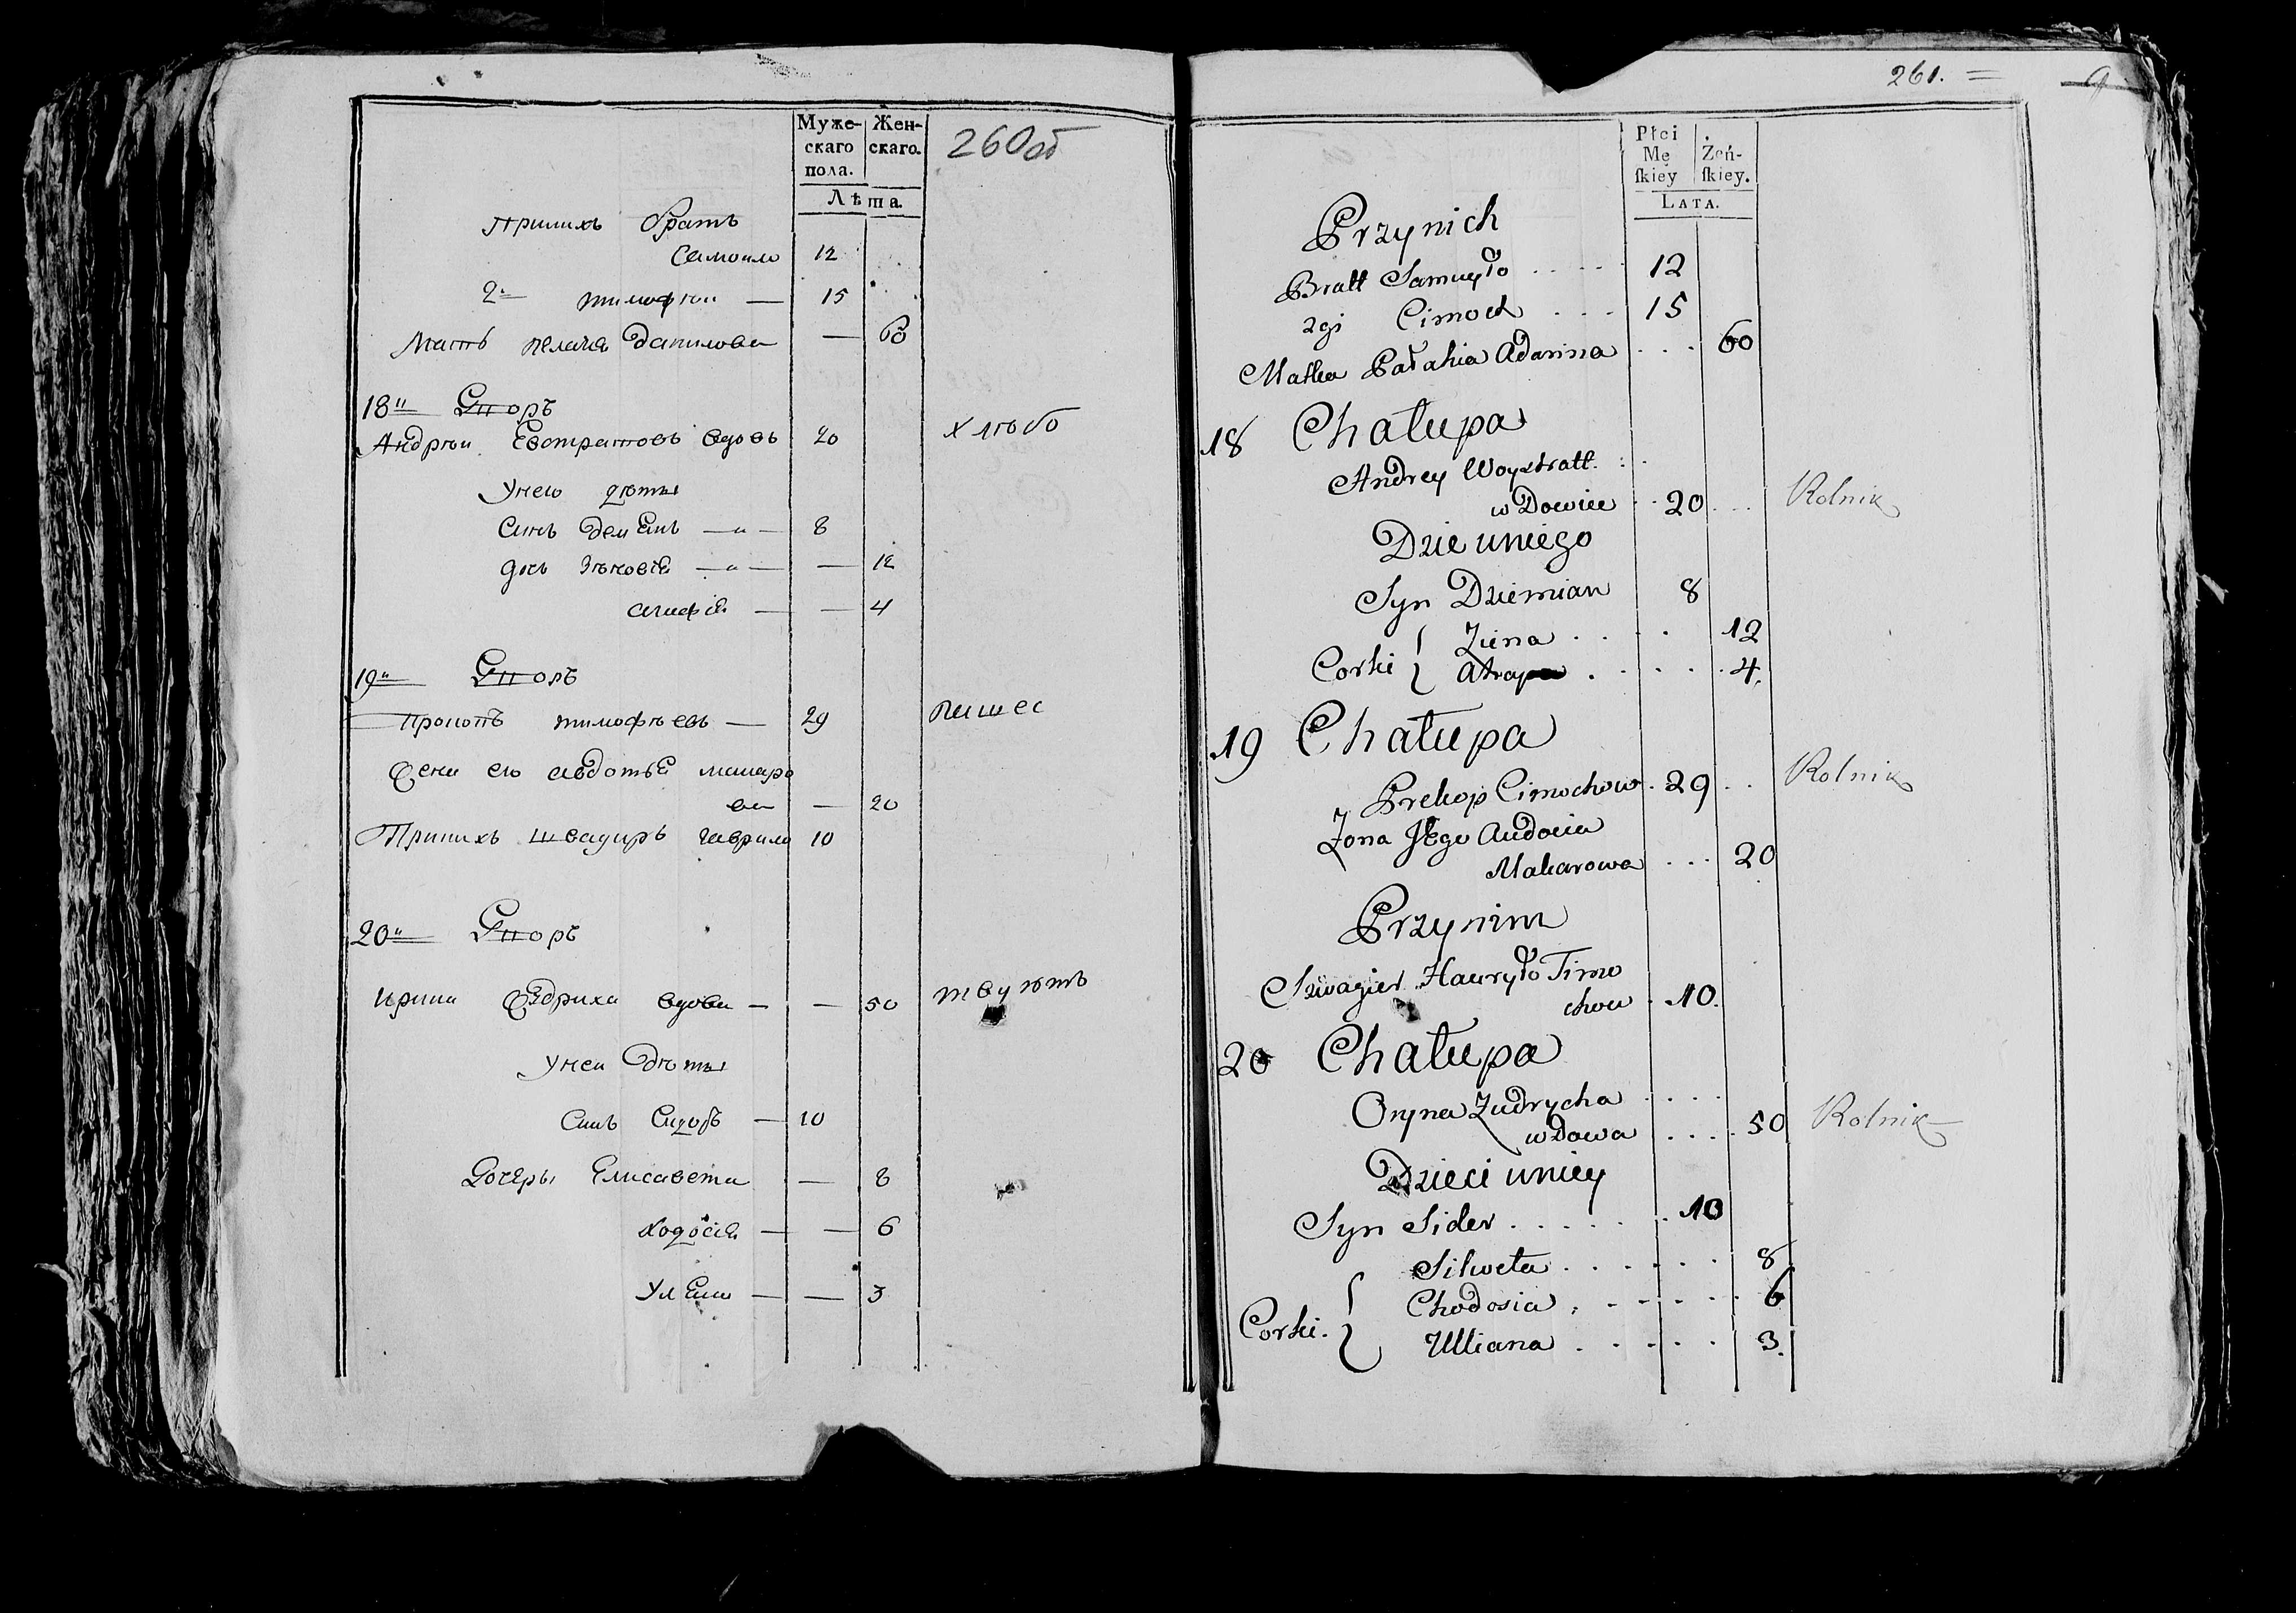 Муже-
скаго
пола.
Жен-
скаго.
Лѣта.
260 об
Принихъ братъ
Самоило 12
2й тимофѣи — 15
Мать пелагѣя Данилова — 60
18й Дворъ
Андрѣи Евстратовъ вдовъ 20
хлѣбо
Унего дѣты
Синъ Демянъ — 8
дочь Зѣновія — 12
агафія — 4
19й Дворъ
Прокопъ тимофѣевъ — 29
пашес
Жена его авдотья макаро
ва — 20
Принихъ швагиръ гаврило 10
20й Дворъ
Ирина Жидриха вдова — 50
твуютъ
Унеи Дѣты
Синъ Сидоръ — 10
Дочеры Елисавета — 8
Ходосія — 6
Уляна — 3
261. =
9
Płci
Mę
ſkiey
Żeń-
ſkiey.
Lata.
Przynich
Bratt Samuyło . . . . 12
2gi Cimoch . . . 15
Matka Pałahia Adanina . . . 60
18 Chałupa
Andrey Woystratt. . .
w Dowiec . . 20 . . . Rolnik
Dzie uniego
Syn Dziemian 8
Corki { Zina . . . . 12
Ahapa . . . . . 4.
19 Chałupa
Prekop Cimochow . 29 . . Rolnik
Zona Jego Audocia
Makarowa . . . 20
Przynim
Szwagier Hauryło Timo
chou . 10.
20 Chałupa
Oryna Zudrycha . . . .
wdowa . . . . 50 Rolnik
Dzieci uniey
Syn Sider . . . . . . . 10
Silweta . . . . . . . 8
Corki. { Chodosia . . . . . . . 6
Ulliana . . . . . . 3.